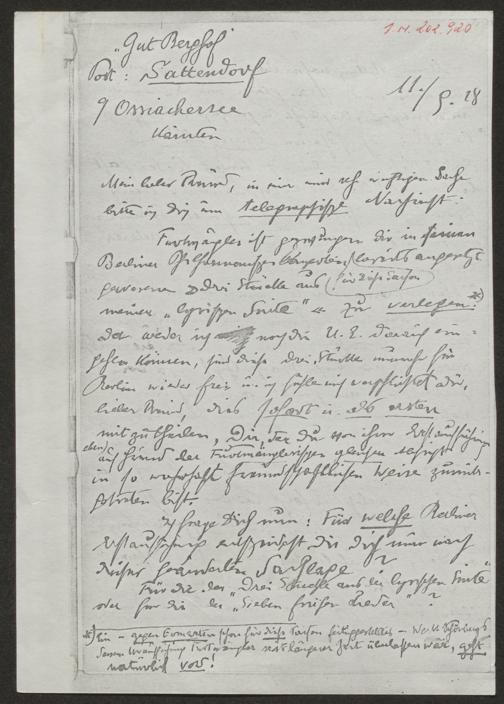 I.N. 202.920
"Gut Berghof"
Post: Sattendorf
Ossiachersee
Kärnten
11./9. 28
Mein lieber Freund, in einer mir sehr wichtigen Sache
bitte ich Dich um telegraphische Nachricht.
Furtwängler ist gezwungen die in seinen
Berliner Philharmonischen bereits angesetzt
gewesenen "drei Stücke aus (für diese Saison)
meiner "lyrischen Suite" zu verlegen. *)
Da weder ich noch die U. E. darauf ein-
gehen können, sind diese drei Stücke nunmehr für
Berlin wieder frei u. ich fühle mich verpflichtet dir,
lieber Freund, dies sofort u. als ersten
mitzutheilen, Dir, der Du von ihrer Erstaufführung
eben auf Grund der Furtwänglerischen gleichen Absicht
in so wahrhaft freundschaftlicher Weise zurück-
getreten bist.
Ich frage Dich nun: Für welche Berliner
Erstaufführung entscheidest Du Dich nun nach
dieser geänderten Sachlage?
Für die der "Drei Stücke aus der lyrischen Suite"
oder für die der "Sieben frühen Lieder"?
*) Ein - gegen Erwarten schon für diese Saison fertiggestelltes - Werk Schönbergs
dessen Uraufführung Furtwängler seit längerer Zeit überlassen war, geht
natürlich vor!